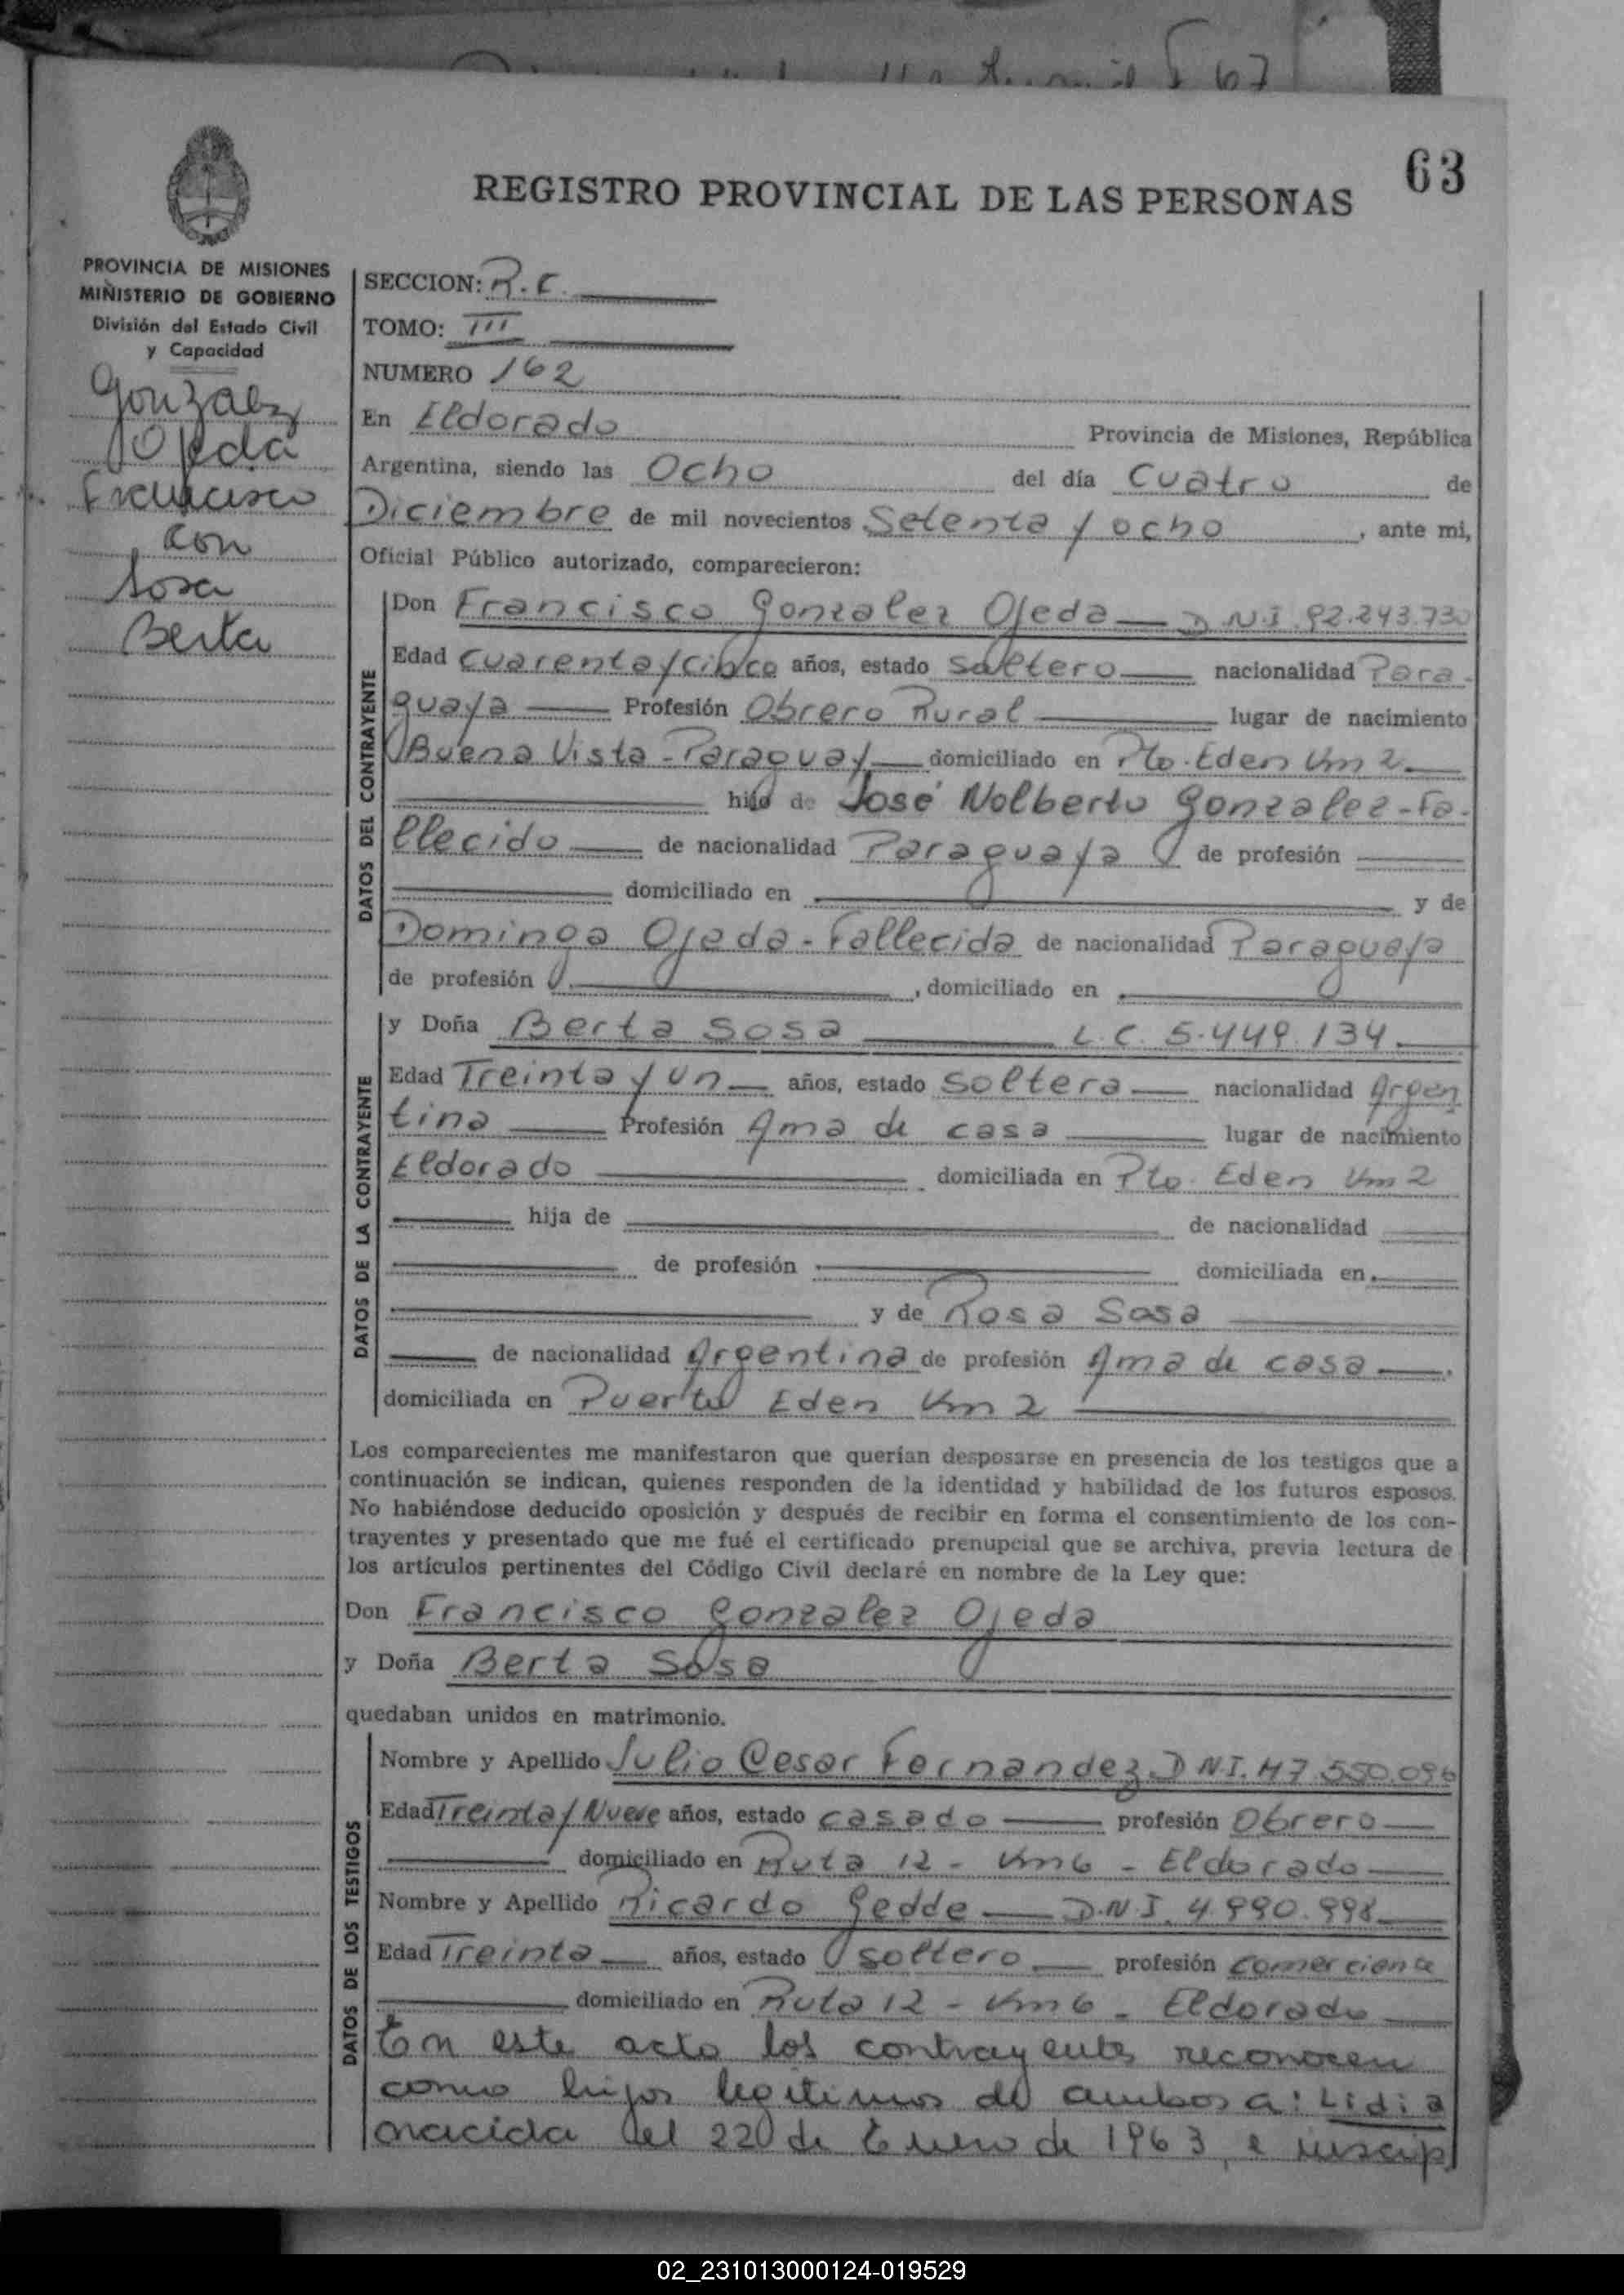 63
REGISTRO PROVINCIAL DE LAS PERSONAS
PROVINCIA DE MISIONES
MINISTERIO DE GOBIERNO
División del Estado Civil
y Capacidad
Gonzalez
Ojeda
Francisco
con
Sosa
Berta
SECCION: R.C.
TOMO: III
NUMERO 162
En Eldorado Provincia de Misiones, República
Argentina, siendo las Ocho del día Cuatro de
Diciembre de mil novecientos Setenta y ocho, ante mi,
Oficial Público autorizado, comparecieron:
DATOS DEL CONTRAYENTE
Don Francisco Gonzalez Ojeda — D.N.I. 92.243.730
Edad Cuarenta y cinco años, estado Soltero — nacionalidad Para-
guaya — Profesión Obrero Rural — lugar de nacimiento
Buena Vista - Paraguay — domiciliado en Pto. Eden Km 2 —
hijo de José Nolberto Gonzalez - Fa-
llecido — de nacionalidad Paraguaya de profesión —
domiciliado en — y de
Dominga Ojeda - Fallecida de nacionalidad Paraguaya
de profesión —, domiciliado en —
DATOS DE LA CONTRAYENTE
y Doña Berta Sosa — L.C. 5.449.134 —
Edad Treinta y un — años, estado Soltera — nacionalidad Argen
tina — Profesión Ama de casa — lugar de nacimiento
Eldorado — domiciliada en Pto. Eden Km 2
— hija de — de nacionalidad —
— de profesión — domiciliada en —
— y de Rosa Sosa —
— de nacionalidad Argentina de profesión Ama de casa —.
domiciliada en Puerto Eden Km 2 —
Los comparecientes me manifestaron que querían desposarse en presencia de los testigos que a
continuación se indican, quienes responden de la identidad y habilidad de los futuros esposos.
No habiéndose deducido oposición y después de recibir en forma el consentimiento de los con-
trayentes y presentado que me fué el certificado prenupcial que se archiva, previa lectura de
los artículos pertinentes del Código Civil declaré en nombre de la Ley que:
Don Francisco Gonzalez Ojeda
y Doña Berta Sosa
quedaban unidos en matrimonio.
DATOS DE LOS TESTIGOS
Nombre y Apellido Julio Cesar Fernandez D.N.I. M7.550.096
Edad Treinta y Nueve años, estado casado — profesión Obrero —
— domiciliado en Ruta 12 - Km 6 - Eldorado —
Nombre y Apellido Ricardo Gedde — D.N.I. 4.990.998 —
Edad Treinta — años, estado soltero — profesión comerciante
— domiciliado en Ruta 12 - Km 6 - Eldorado —
En este acto los contrayentes reconocen
como hijos legitimos de ambos a: Lidia
nacida el 22 de Enero de 1963, e inscrip
02_231013000124-019529